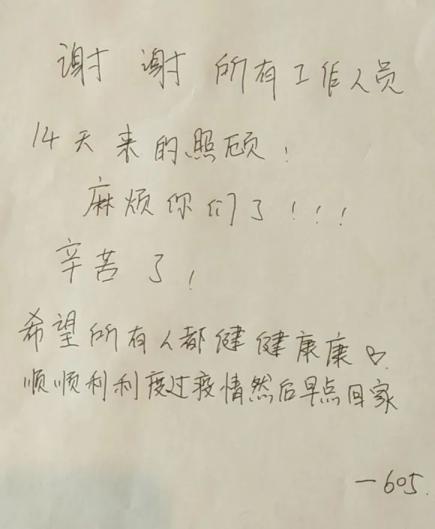 谢谢所有工作人员
14天来的照顾!
麻烦你们了!!!
辛苦了!
希望所有人都健健康康♡.
顺顺利利度过疫情然后早点回家
—605.